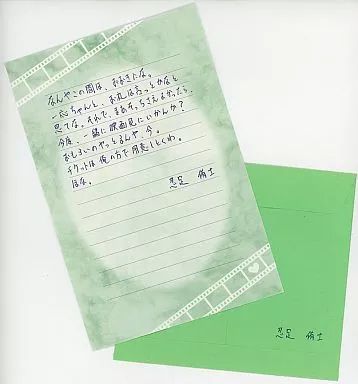 なんやこの間は、おおきにな。
一応ちゃんと、お礼は言っとかなと
思てな。それで、まあそっちさえよかったら、
今度、一緒に映画見にいかんか?
おもしろいのやっとるんや、今。
チケットは俺の方で用意しとくわ。
ほな。
忍足 侑士
忍足 侑士